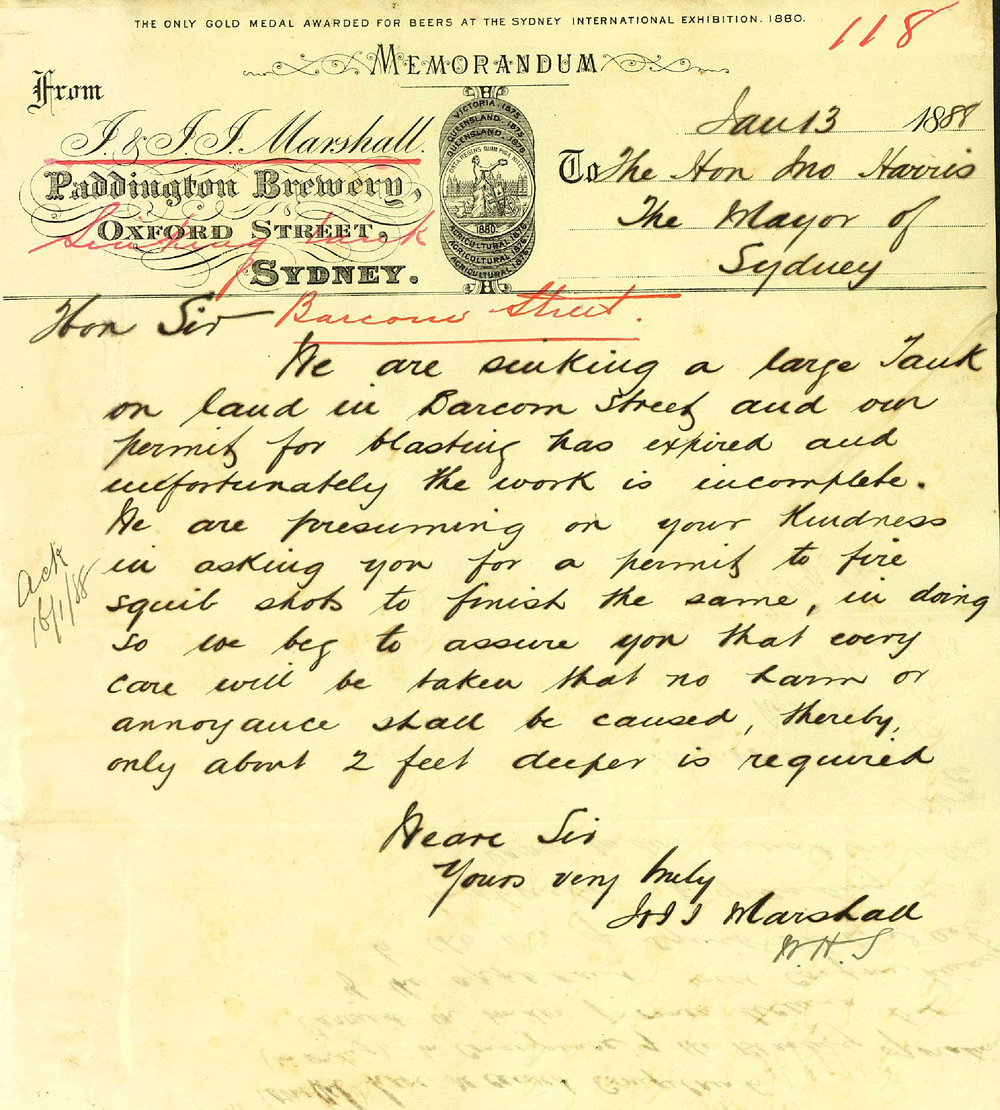 THE ONLY GOLD MEDAL AWARDED FOR BEERS AT THE SYDNEY INTERNATIONAL EXHIBITION. 1880.
118
MEMORANDUM
From
J. & J. J. Marshall.
Paddington Brewery,
OXFORD STREET,
SYDNEY.
VICTORIA. 1875
QUEENSLAND. 1875
QUEENSLAND. 1876
1880
AGRICULTURAL. 1876
AGRICULTURAL. 1876
AGRICULTURAL. 1878
Jan 13 1888
To The Hon Jno Harris
The Mayor of
Sydney
Sinking tank
Barcom Street.
Hon Sir
We are sinking a large Tank
on land in Barcom Street and our
permit for blasting has expired and
unfortunately the work is incomplete.
We are presuming on your Kindness
in asking you for a permit to fire
squib shots to finish the same, in doing
so we beg to assure you that every
care will be taken that no harm or
annoyance shall be caused, thereby,
only about 2 feet deeper is required
Ack
16/1/88
We are Sir
Yours very truly
J & J J Marshall
W.H.S